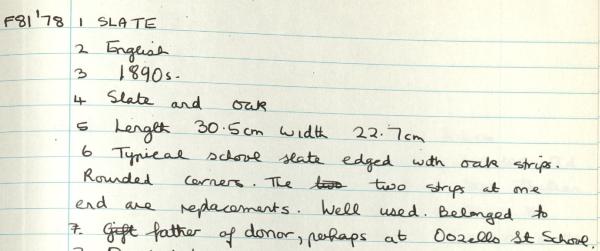 F81'78 1 SLATE
2 English
3 1890s.
4 Slate and oak
5 Length 30.5cm width 22.7cm
6 Typical school slate edged with oak strips.
Rounded corners. The two two strips at one
end are replacements. Well used. Belonged to
7. gift father of donor, perhaps at Oozells St School.